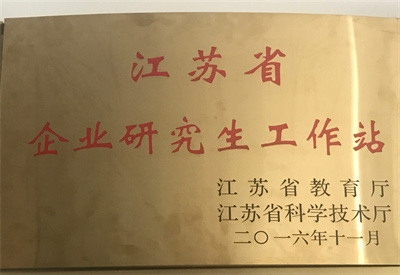 江苏省
企业研究生工作站
江苏省教育厅
江苏省科学技术厅
二〇一六年十一月